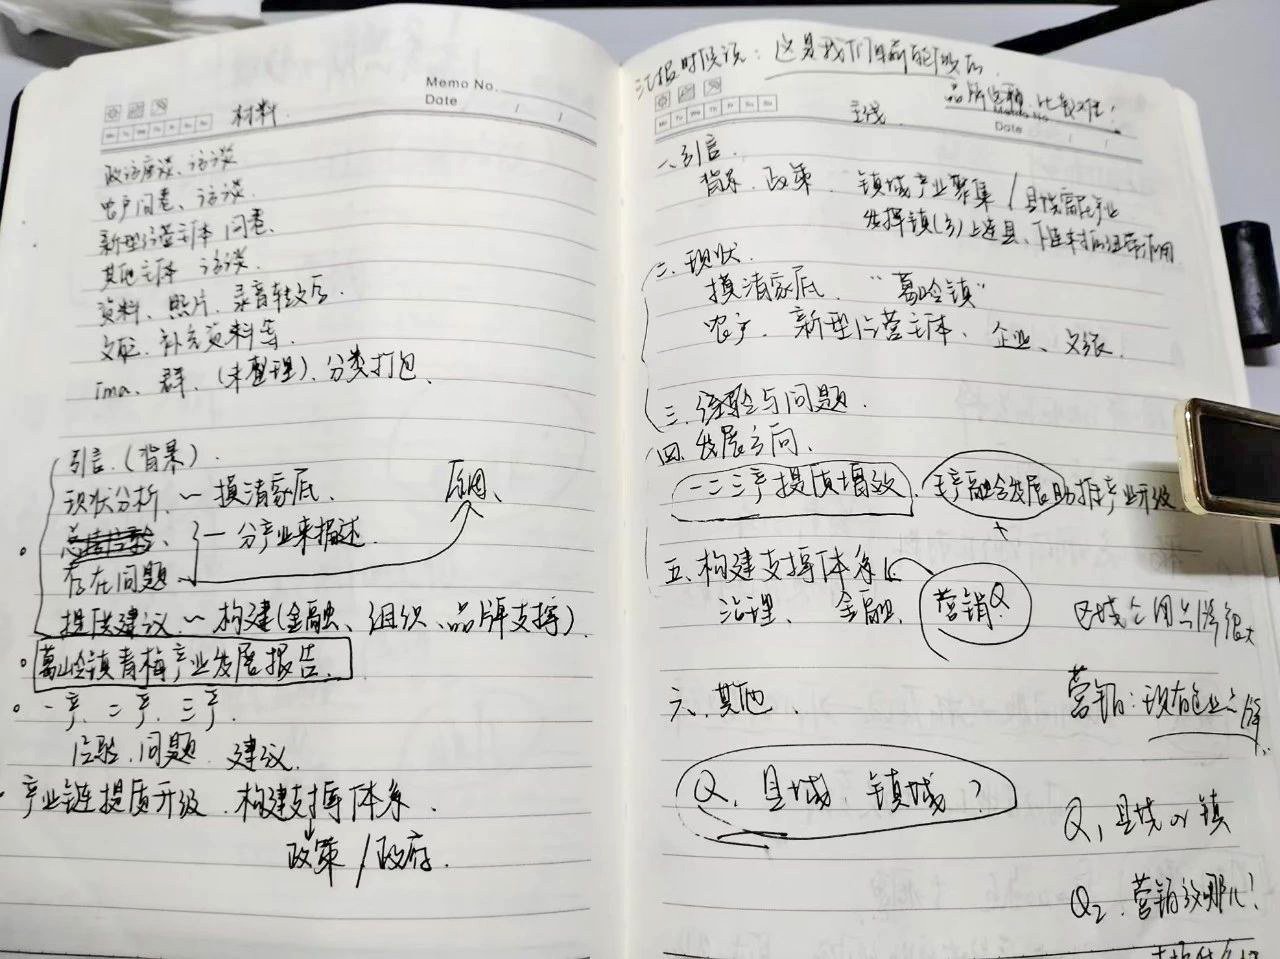 Memo No.
Date
材料
政府座谈、访谈
农户问卷、访谈
新型经营主体 问卷、
其他主体 访谈
资料、照片、录音转文字
文献、补充资料等
ima、群、(未整理)、分类打包、
引言、(背景)、
现状分析 ~ 摸清家底、
总结经验、
一分产业来描述
存在问题
原因、
提供建议 ~ 构建(金融、组织、品牌支撑)
葛岭镇青梅产业发展报告、
一产、二产、三产、
经验、问题、建议、
产业链提质升级、构建支撑体系、
政策/政府、
汇报时候说:这是我们
品牌 比较难!
Memo No
Date
主线
一、引言、
背景、政策、 镇域产业聚集/县域富民产业
发挥镇(乡)上连县、下连村的纽带作用
二、现状
摸清家底、“葛岭镇”
农户、新型经营主体、企业、文旅
三、经验与问题
四、发展方向、
一二三产提质增效、 产融合发展助推产业升级
五、构建支撑体系
治理、金融、营销Q
区域公用品牌很大
六、其他、
营销:现有企业品牌
Q、县域、镇域?
Q1 县域or镇
Q2、营销放哪儿?